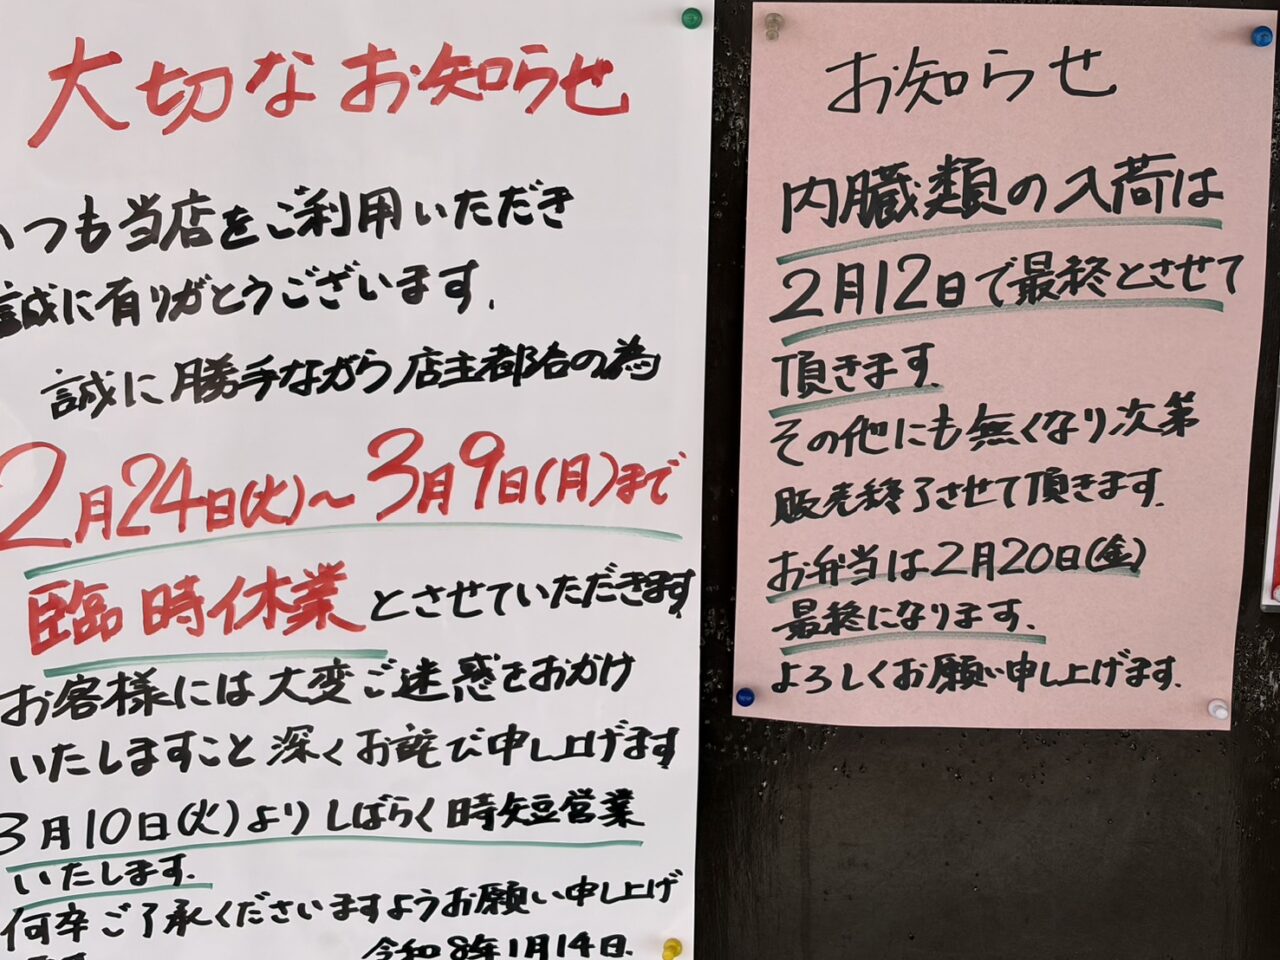 大切なお知らせ
いつも当店をご利用いただき
誠に有りがとうございます.
誠に勝手ながら店主都合の為
2月24日(火)～3月9日(月)まで
臨時休業とさせていただきます
お客様には大変ご迷惑をおかけ
いたしますこと深くお詫び申し上げます
3月10日(火)よりしばらく時短営業
いたします.
何卒ご了承くださいますようお願い申し上げ
令和8年1月14日.
お知らせ
内臓類の入荷は
2月12日で最終とさせて
頂きます.
その他にも無くなり次第
販売終了させて頂きます.
お弁当は2月20日(金)
最終になります.
よろしくお願い申し上げます.